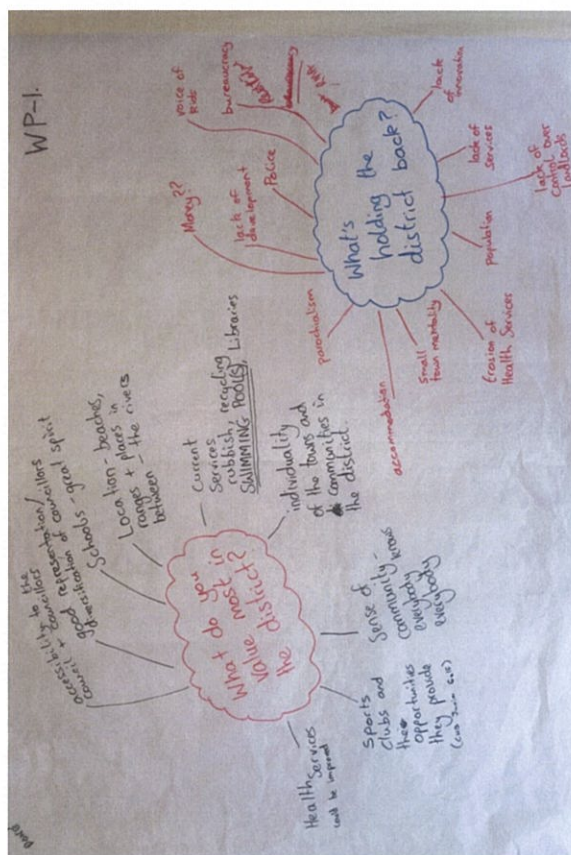 WP-1.
What do you
value most in
the district?
accessibility to the
council + councillors
good representation/
diversification of councillors
Schools - great spirit
Location - beaches,
ranges + places in
between - the rivers
Current
Services
rubbish, recycling
SWIMMING POOL(S), Libraries
individuality
of the towns and
communities in
the district.
Sense of
community -
everybody knows
everybody
Sports
clubs and
the opportunities
they provide
Health Services
could be improved
What's
holding the
district back?
Money??
lack of
development
Police
voice of
kids
bureaucracy
lack
of innovation
lack of
services
lack of
control over
landlords
population
Erosion of
Health Services
Small
town mentality
accommodation
parochialism